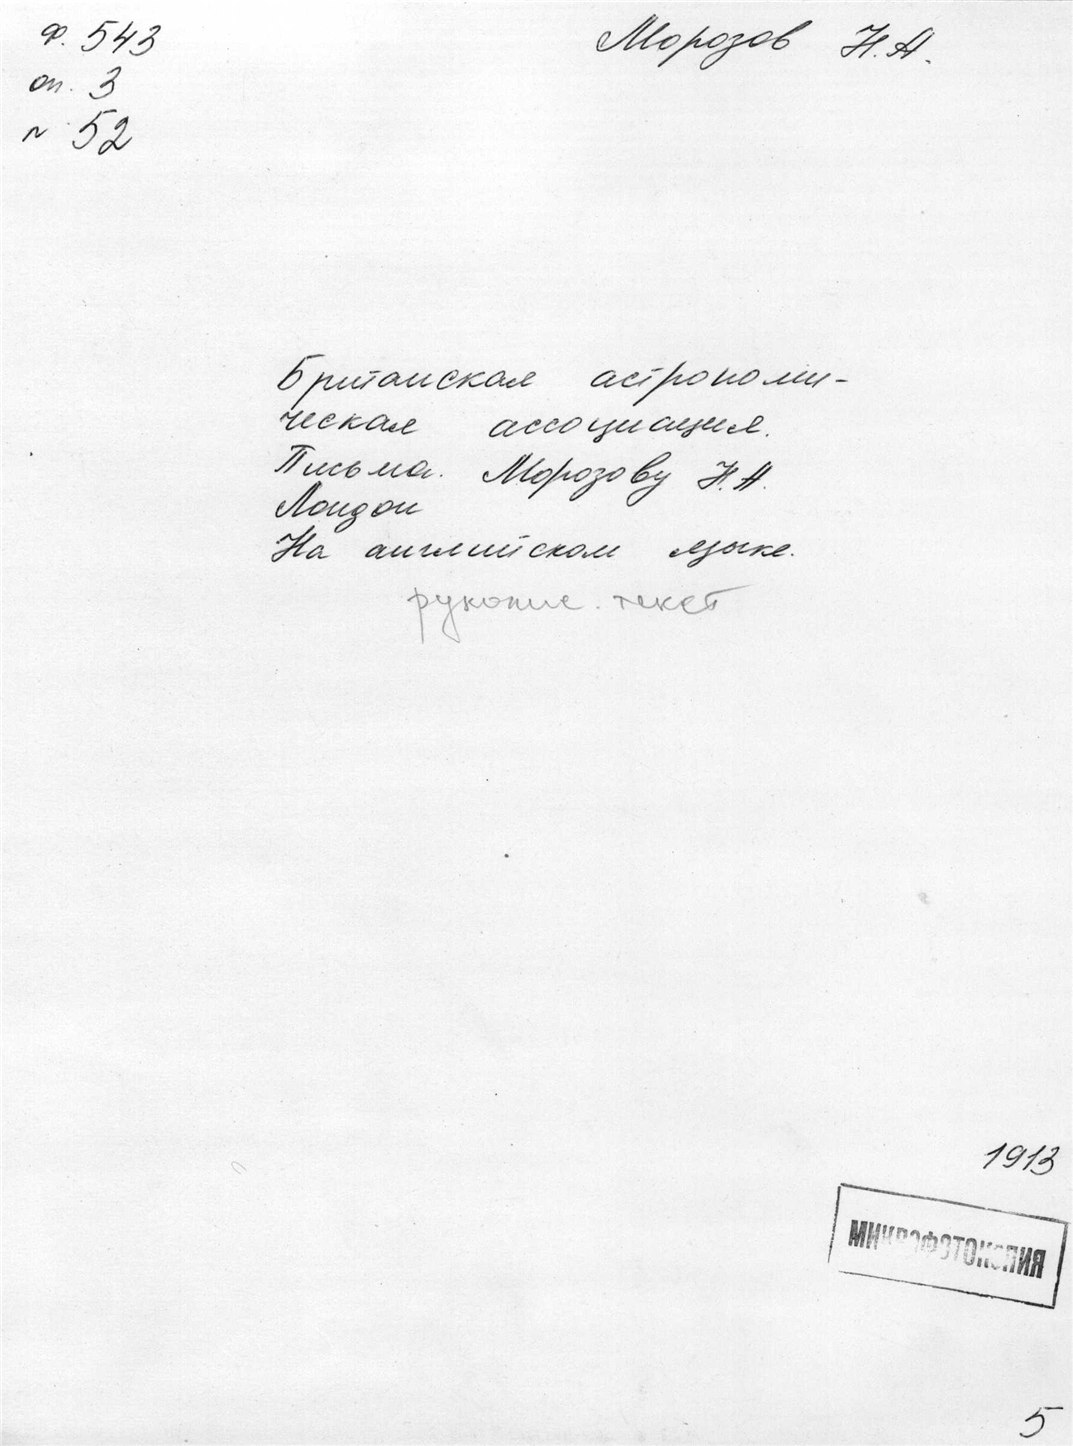 ф. 543
оп. 3
№ 52
Морозов Н.А.
Британская астрономи-
ческая ассоциация.
Письма. Морозову Н.А.
Лондон
На английском языке.
рукопис. текст
1913
МИКРОФОТОКОПИЯ
5